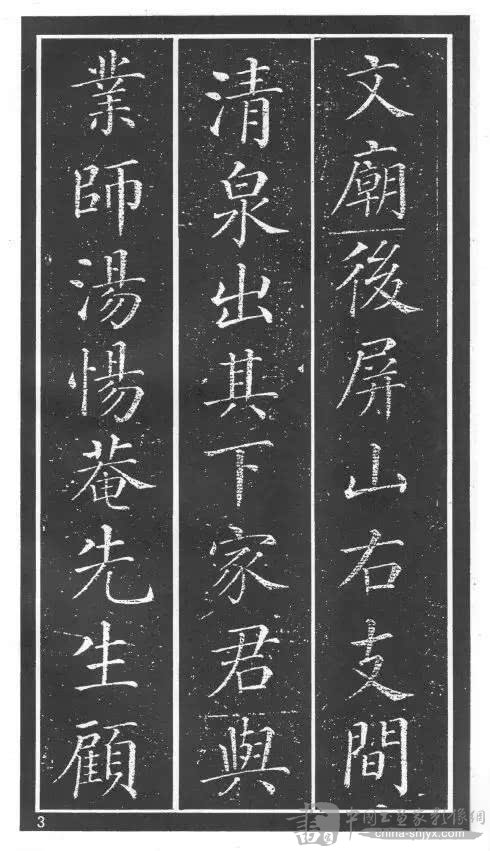 文廟後屏山右支間
清泉出其下家君與
業師湯惕菴先生顧
3
中国书画家影像網
china-shjyx.com